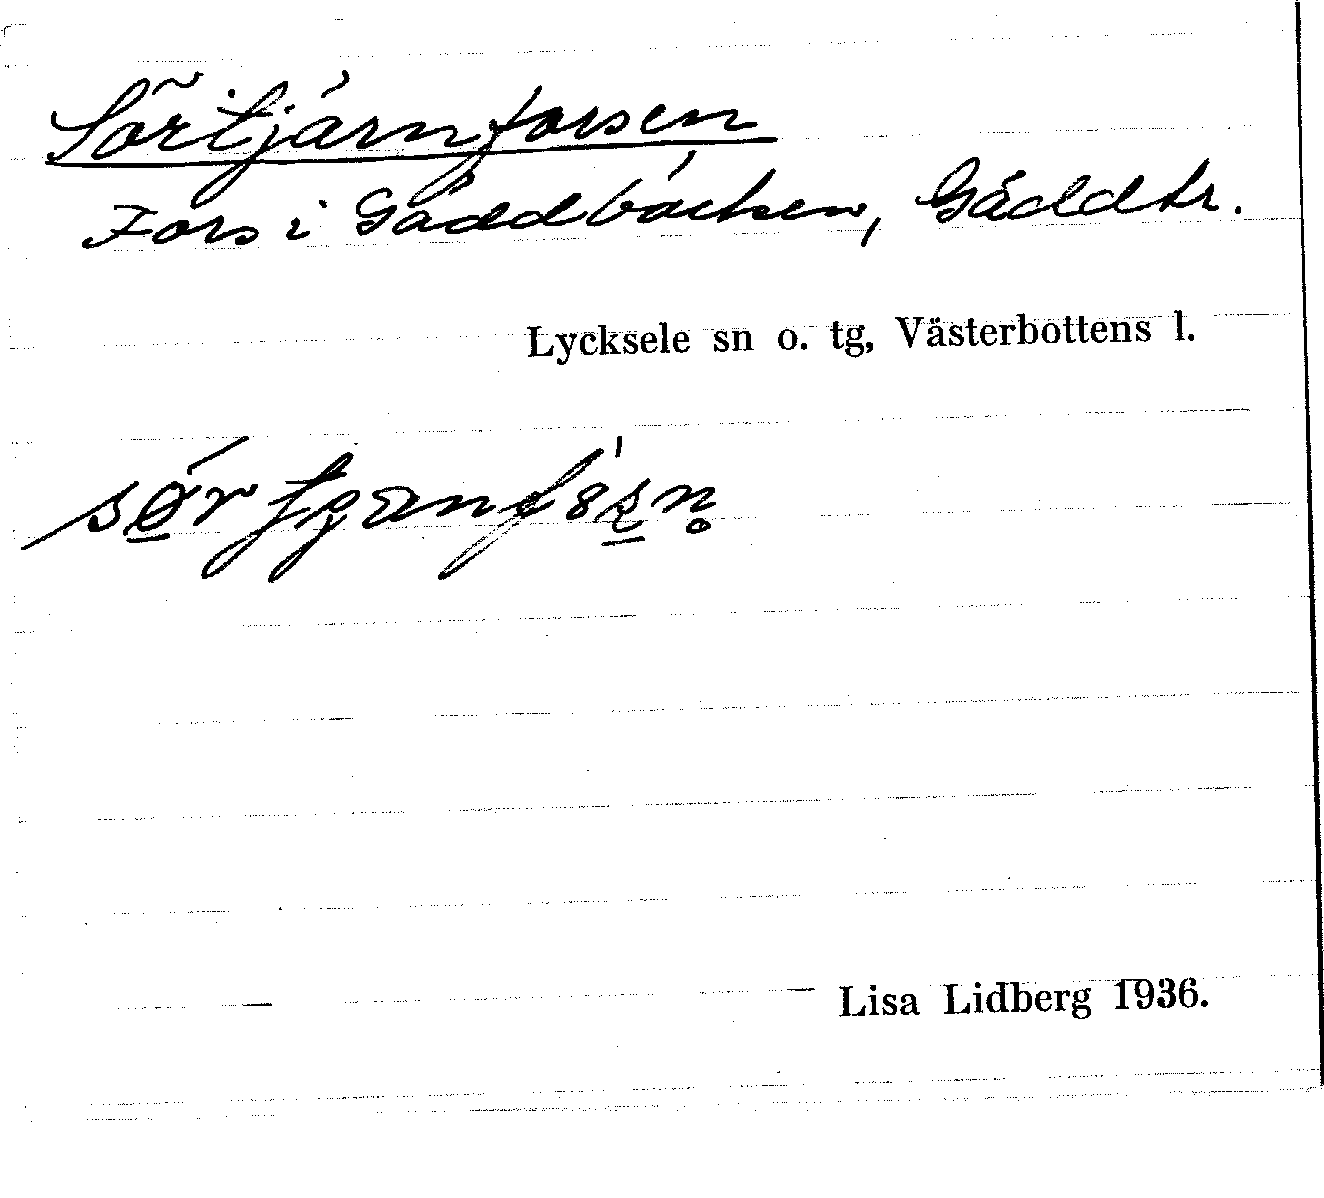 Sörtjärnforsen
Fors i Gäddbäcken, Gäddtr.
Lycksele sn o. tg, Västerbottens l.
Lisa Lidberg 1936.